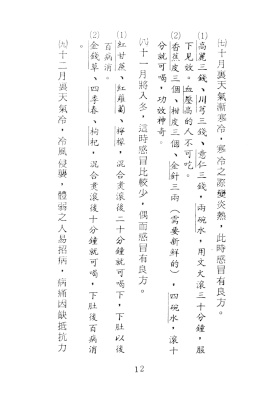 ㈦十月裏天氣漸寒冷，寒冷之際變炎熱，此時感冒有良方。
⑴高麗三錢、川芎三錢、薏仁三錢，兩碗水，用文火滾三十分鐘，服
下見效。血壓高的人不可吃。
⑵香蕉皮三個、柑皮三個、金針三兩（需要新鮮的），四碗水，滾十
分就可喝，功效神奇。
㈧十一月將入冬，這時感冒比較少，偶而感冒有良方。
⑴紅甘蔗、紅蘿蔔、檸檬，混合煮滾後二十分鐘就可喝下，下肚以後
百病消。
⑵金錢草、四季春、枸杞，混合煮滾後十分鐘就可喝，下肚後百病消
。
㈨十二月裏天氣冷，冷風侵襲，體弱之人易招病，病痛因缺抵抗力
12